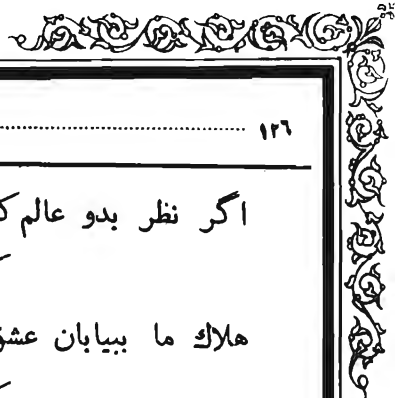 ۱۲٦
اگر نظر بدو عالم
هلاك ما ببیابان عشق